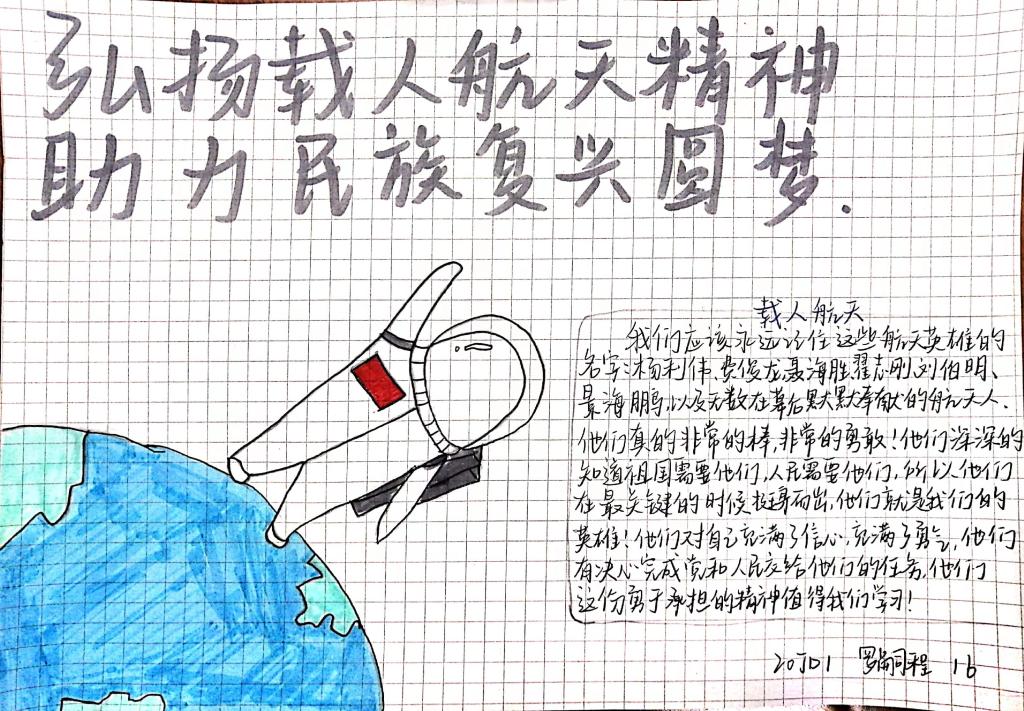 弘扬载人航天精神
助力民族复兴圆梦.
载人航天
我们应该永远记住这些航天英雄的
名字:杨利伟、费俊龙聂海胜翟志刚刘伯明、
景海鹏,以及无数在幕后默默奉献的航天人.
他们真的非常的棒,非常的勇敢!他们深深的
知道祖国需要他们,人民需要他们,所以他们
在最关键的时候挺身而出,他们就是我们的
英雄!他们对自己充满了信心,充满了勇气,他们
有决心完成党和人民交给他们的任务,他们
这份勇于承担的精神值得我们学习!
20JD1 同程 16